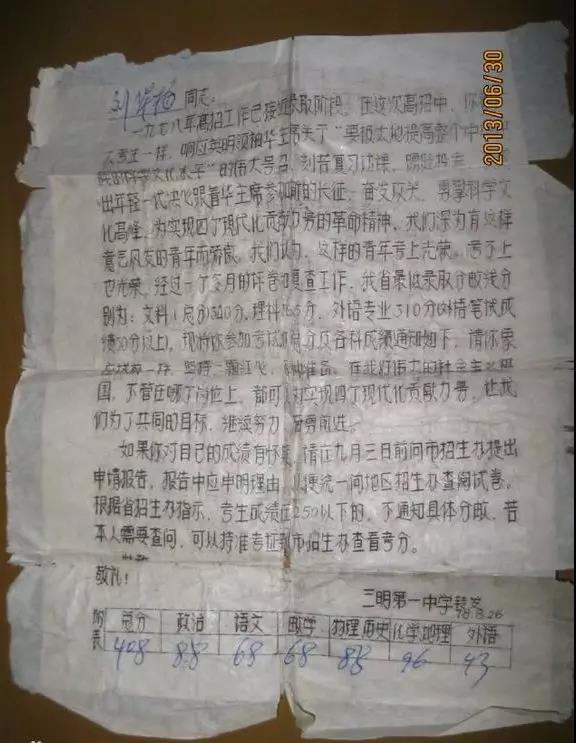 同志:
一九七八年高招工作已接近录取阶段。在这次高招中,你
考生一样,响应英明领袖华主席关于“要极大地提高整个中
科学文化水平”的伟大号召,刻苦复习功课,踊跃投考,
出年轻一代决心跟着华主席参加新的长征,奋发攻关,勇攀科学文
化高峰,为实现四个现代化贡献力量的革命精神。我们深为有这样
意气风发的青年而骄傲。我们认为,这样的青年考上光荣,考不上
也光荣。经过一个多月的评卷和复查工作,我省最低录取分数线分
别为:文科(总分)300分,理科 分,外语专业310分(外语笔试成
绩50分以上)。现将你参加考试的总分及各科成绩通知如下,请你象
一样,坚持一颗红心, 准备。在我们伟大的社会主义祖
国,不管在哪个岗位上,都可以对实现四个现代化贡献力量,让我
们为了共同的目标,继续努力,奋勇前进。
如果你对自己的成绩有怀疑,请在九月三日前向市招生办提出
申请报告,报告中应申明理由,以便统一向地区招生办查阅试卷。
根据省招生办指示,考生成绩在250以下的,不通知具体分数,若
本人需要查问,可以持准考证到市招生办查看考分。
敬礼!
三明第一中学转发
78.8.26
附表 总分 政治 语文 数学 物理历史 化学地理 外语
408 88 68 68 88 96 43
2013/06/30